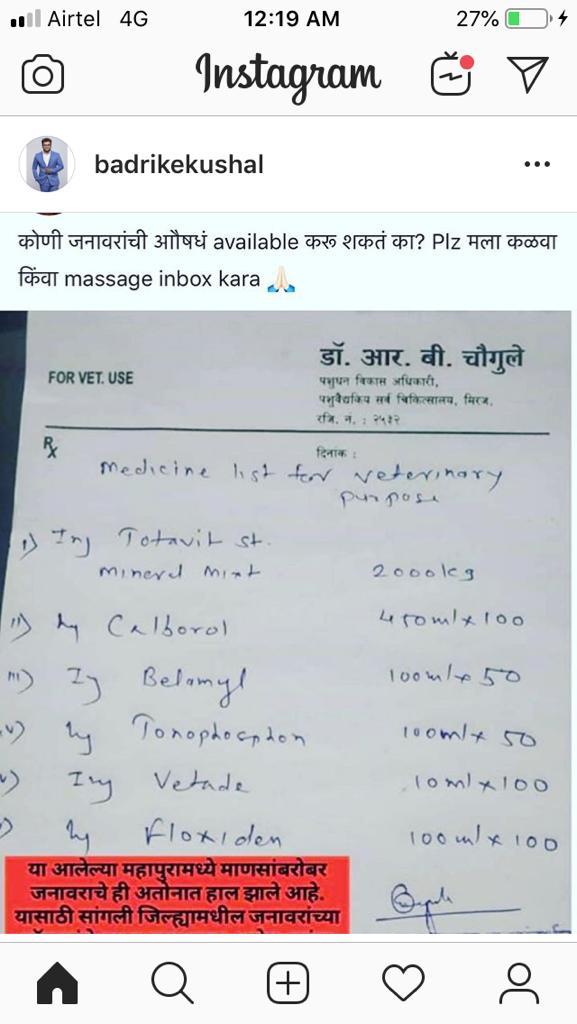 Airtel 4G 12:19 AM 27%
Instagram
badrikekushal
कोणी जनावरांची औषधं available करू शकतं का? Plz मला कळवा
किंवा massage inbox kara 🙏🏻
डॉ. आर. बी. चौगुले
FOR VET. USE
पशुधन विकास अधिकारी,
पशुवैद्यकिय सर्व चिकित्सालय, मिरज.
रजि. नं. : २५३२
Rx
दिनांक :
Medicine list for veterinary
purpose
i) Inj Totavit st.
mineral mixt 2000kg
ii) Inj Calborol 450ml x 100
iii) Inj Belamyl 100ml x 50
iv) Inj Tonophosphon 100ml x 50
v) Inj Vetade 10ml x 100
Inj Floxiden 100ml x 100
या आलेल्या महापुरामध्ये माणसांबरोबर
जनावराचे ही अतोनात हाल झाले आहे.
यासाठी सांगली जिल्ह्यामधील जनावरांच्या